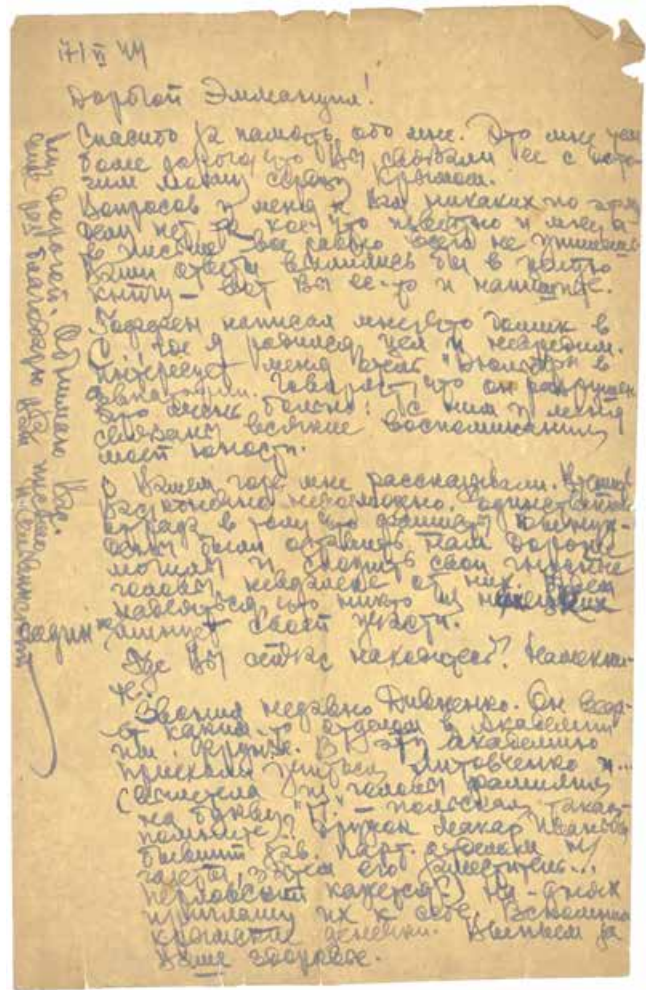 17/VI 44
Дорогой Эммануил!
Спасибо за память обо мне. Это мне тем
более дорого, что Вы связали ее с
моему сердцу Крымом.
Вопросов у меня к Вам никаких по этому
делу нет. Кое что известно и мне, а
в письме все равно всего не
Ваши ответы вылились бы в целую
книгу — вот Вы ее-то и напишите.
написал мне, что домик в
С где я родился, цел и невредим.
Интересует меня отель "Дюльбер" в
Евпатории. Говорят, что он разрушен
Это очень больно: с ним у меня
связаны всякие воспоминания
моей юности.
О Вашем горе мне рассказывали.
Вас конечно невозможно. Единственная
отрада в том, что фашисты
были оставить там дорогие
могилы и сложить свои
головы невдалеке от них. Будем
надеяться, что никто из
не минует своей участи.
Где Вы сейчас находитесь?
Звонил недавно Дивненко. Он
каким-то отделом в Академии
им. Фрунзе. В эту академию
приехали учиться Литовченко и...
(вылетела из головы фамилия
на букву "П" — польская такая
помните? Дружок Макар Иваныча
бывший зав. парт. отделом
газеты, затем его заместитель...
Перловский кажется?) На-днях
приглашу их к себе. Вспомним
крымские денечки. Выпьем за
Ваше здоровье.
дорогой. Обнимаю Вас.
Еще раз благодарю Вас